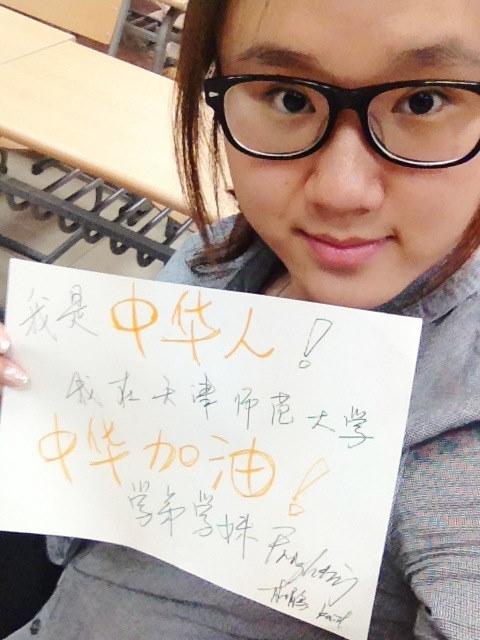 我是中华人！
我在天津师范大学
中华加油！
学弟学妹